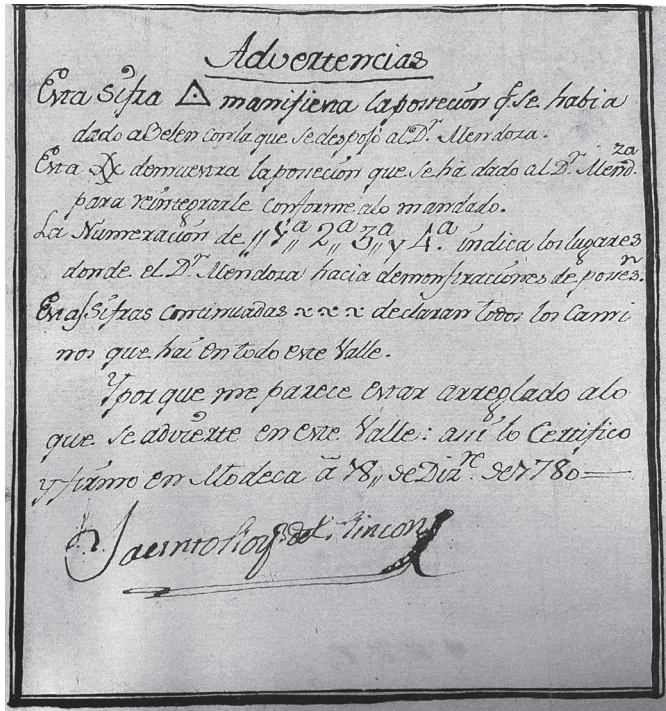 Advertencias
Esta Sifra manifiesta la posseción q.e se habia
dado a Belen con la que se despojó al D.r Mendoza.
Esta demuestra la posseción que se ha dado al D.r Mend.za
para reintegrarle conforme alo mandado.
La Numeración de „ 1.a„ 2.a„ 3.a„ y 4.a indica los lugares
donde el D.r Mendoza hacia demonstraciones de posses.n
Estas Sifras continuadas declaran todos los Cami
nos que hai en todo este Valle.
Y por que me parece estar arreglado alo
que se advierte en este Valle: assi lo Certifico
y firmo en Modeca á 18„ de Diz.re de 1780
Jacinto Roqe del Rincon